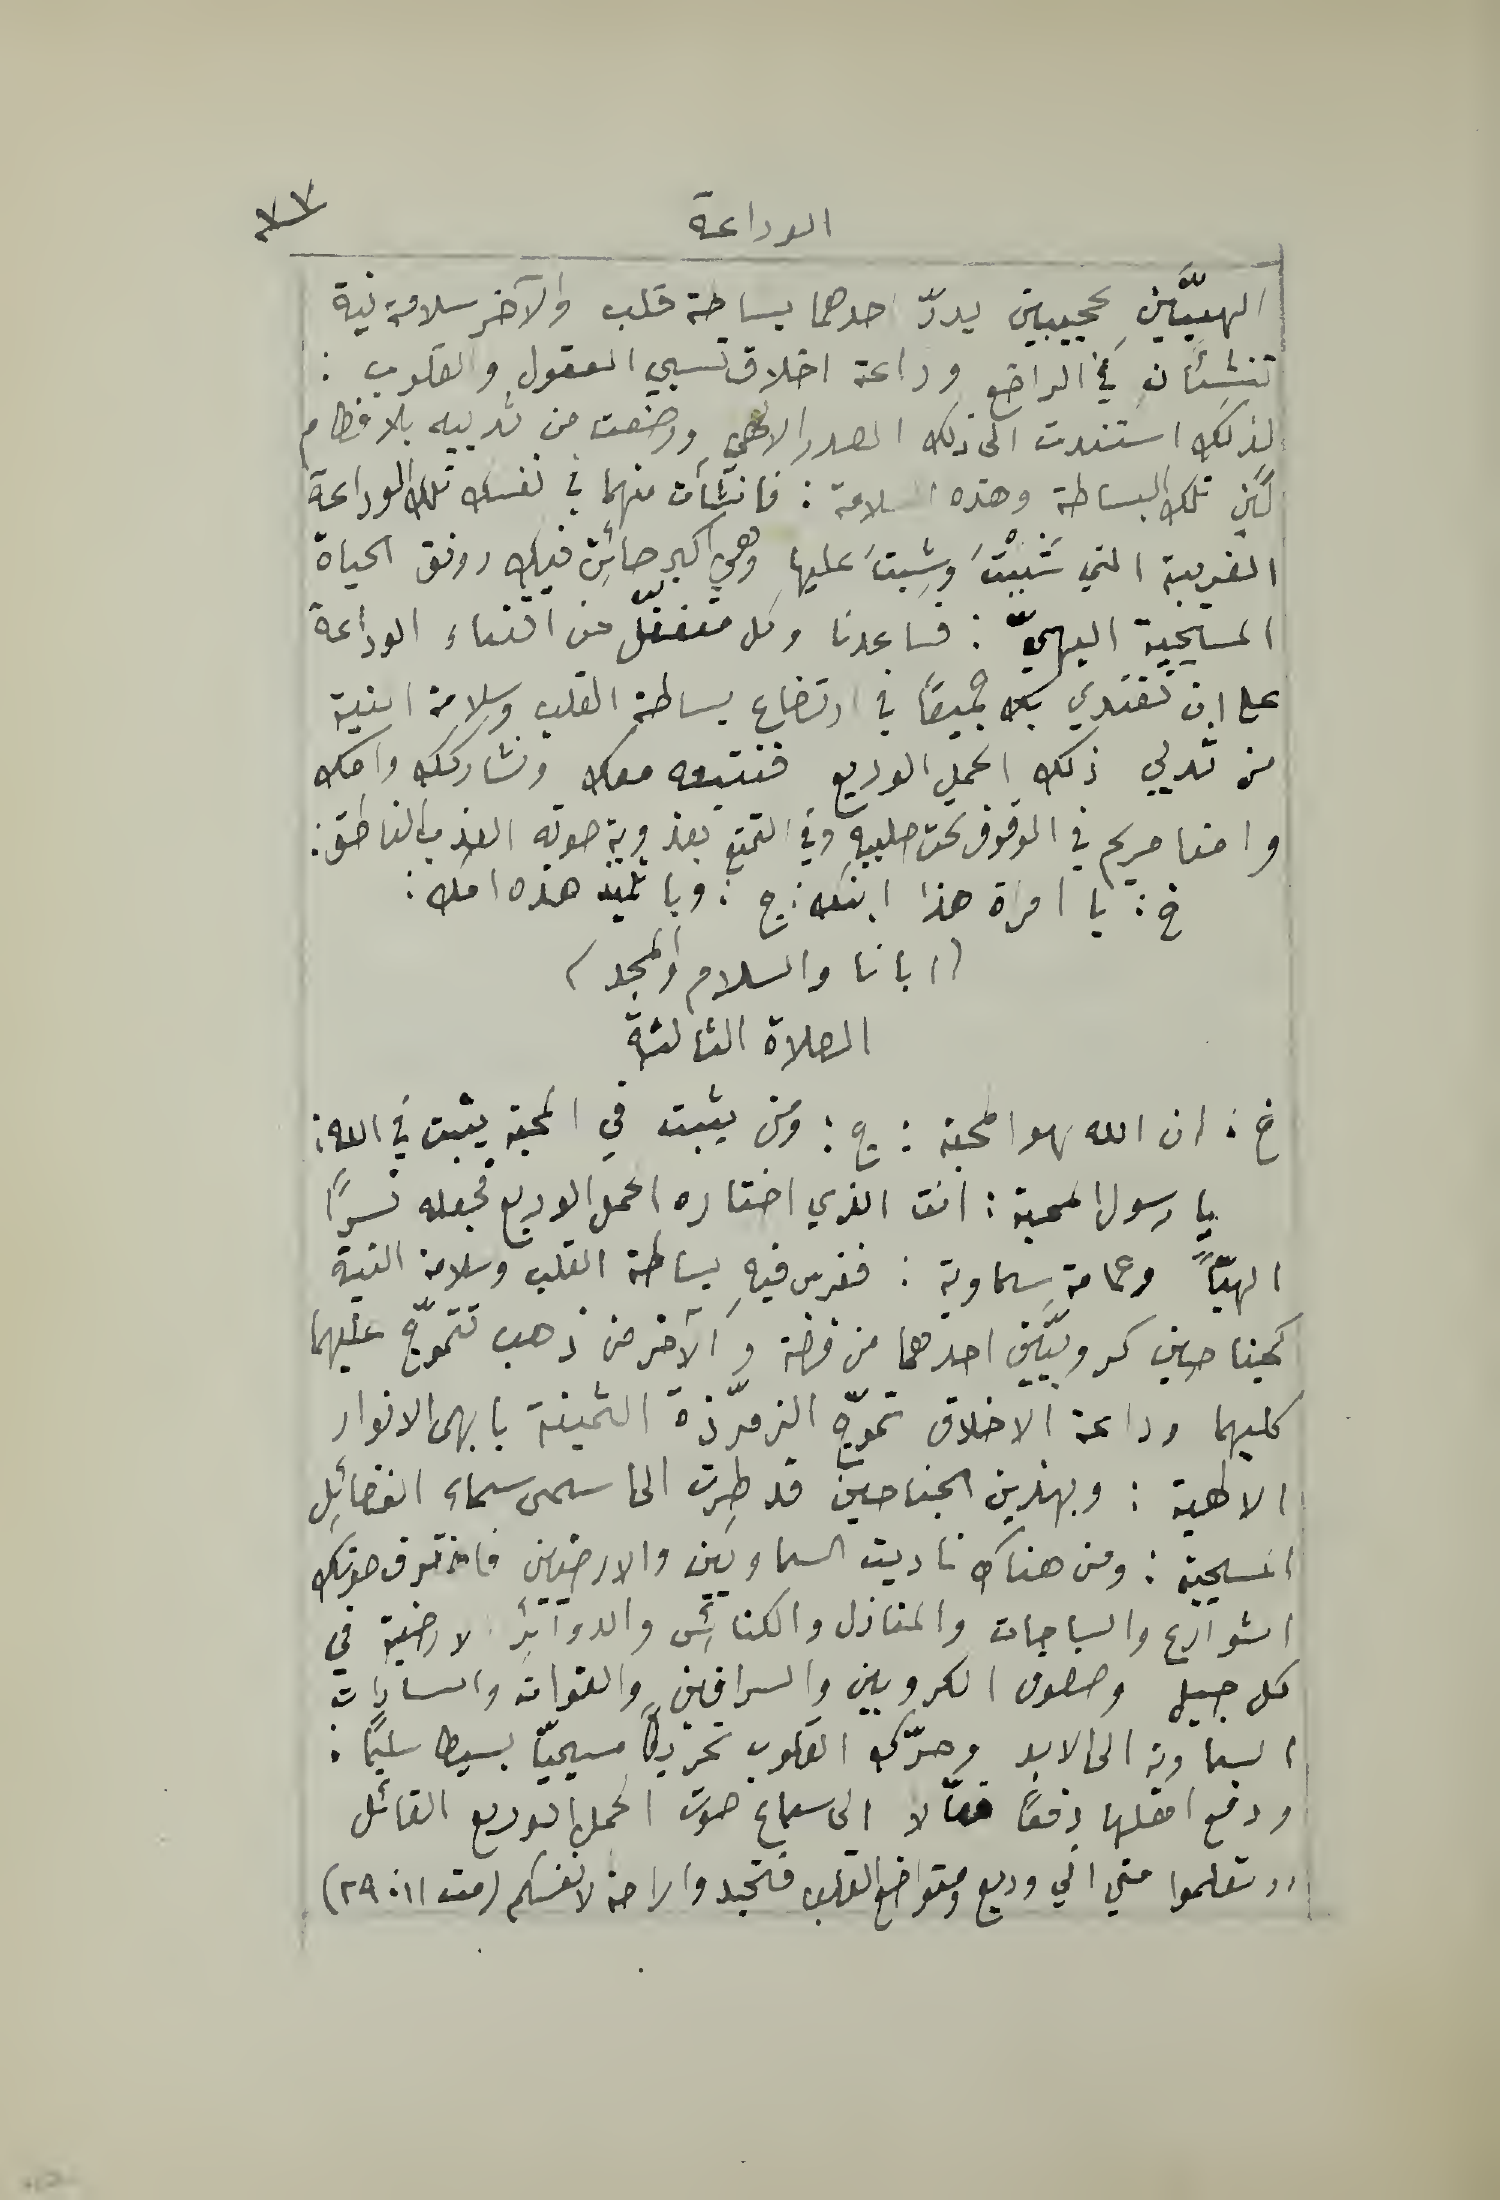 الوداعة ٧٧
الهيَّينِ عجيبين يدرّ احدهما بساطة قلب والآخر سلامة نية
تنشِئَانِ في الراضع وداعة اخلاق تسبي العقول والقلوب :
لذلك استندت الى ذلك الصدر الالهي ورضعت من ثدييه بلا فطام
لبَنَ تلك البساطة وهذه السلامة : فانشأت منهما في نفسك تلك الوداعة
الغريبة التي شَبَبْتَ وشِبتَ عليها وهي اكبر حاثٍ فيك رونق الحياة
المسيحية البهيّ : فساعدنا وكل متغفّل عن اقتناء الوداعة
على ان نقتدي بك جميعًا في ارتضاع بساطة القلب وسلامة النية
من ثديي ذلك الحمل الوديع فنتبعه معك ونشاركك وامك
وامنا مريم في الوقوف تحت صليبهِ وفي التمتع بعذوبة صوته العذب الناطق :
خ : يا امراة هذا ابنك : ج : ويا تلميذ هذه امك :
(ابانا والسلام والمجد)
الصلاة الثالثة
خ : ان الله هو المحبة : ج : ومن يثبت في المحبة يثبت في الله :
يا رسول المحبة : انت الذي اختاره الحمل الوديع فجعله نسرًا
الهيًّا وحمامة سماوية : فغرس فيهِ بساطة القلب وسلامة النية
كجناحين كروبيَّين احدهما من فضة والآخر من ذهب تتموّج عليهما
كليهما وداعة الاخلاق تموّج الزمرّذة الثمينة بابهى الانوار
الالهية : وبهذين الجناحين قد طِرت الى اسمى سماء الفضائِل
المسيحية : ومن هناك ناديت السماويين والارضيين فاخترق صوتك
الشوارع والساحات والمنازل والكنائِس والدوائر الارضية في
كل جيل وصفوف الكروبين والسرافين والقوات والسادات
السماوية الى الابد وحرّك القلوب تحريكًا مسيحيًّا بسيطا سليمًا :
ودفع اهلها دفعًا فعّالا الى سماع صوت الحمل الوديع القائل
" تعلموا مني اني وديع ومتواضع القلب فتجدوا راحة لانفسكم (مت ١١ : ٢٩)